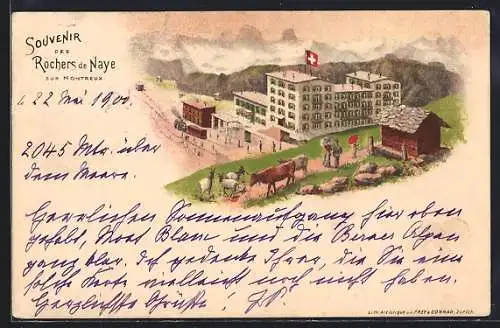 SOUVENIR
DES
Rochers de Naye
SUR MONTREUX.
22 Mai 1900.
2045 Mtr. über
dem Meere.
Herrlichen Sonnenaufgang hier oben
gehabt, Mont Blanc und die Berner Alpen
ganz klar. Ich gedenke Ihrer, die Sie eine
solche Karte vielleicht noch nicht haben.
Herzlichste Grüsse!
LITH. ARTISTIQUE FREY & CONRAD, Zurich.